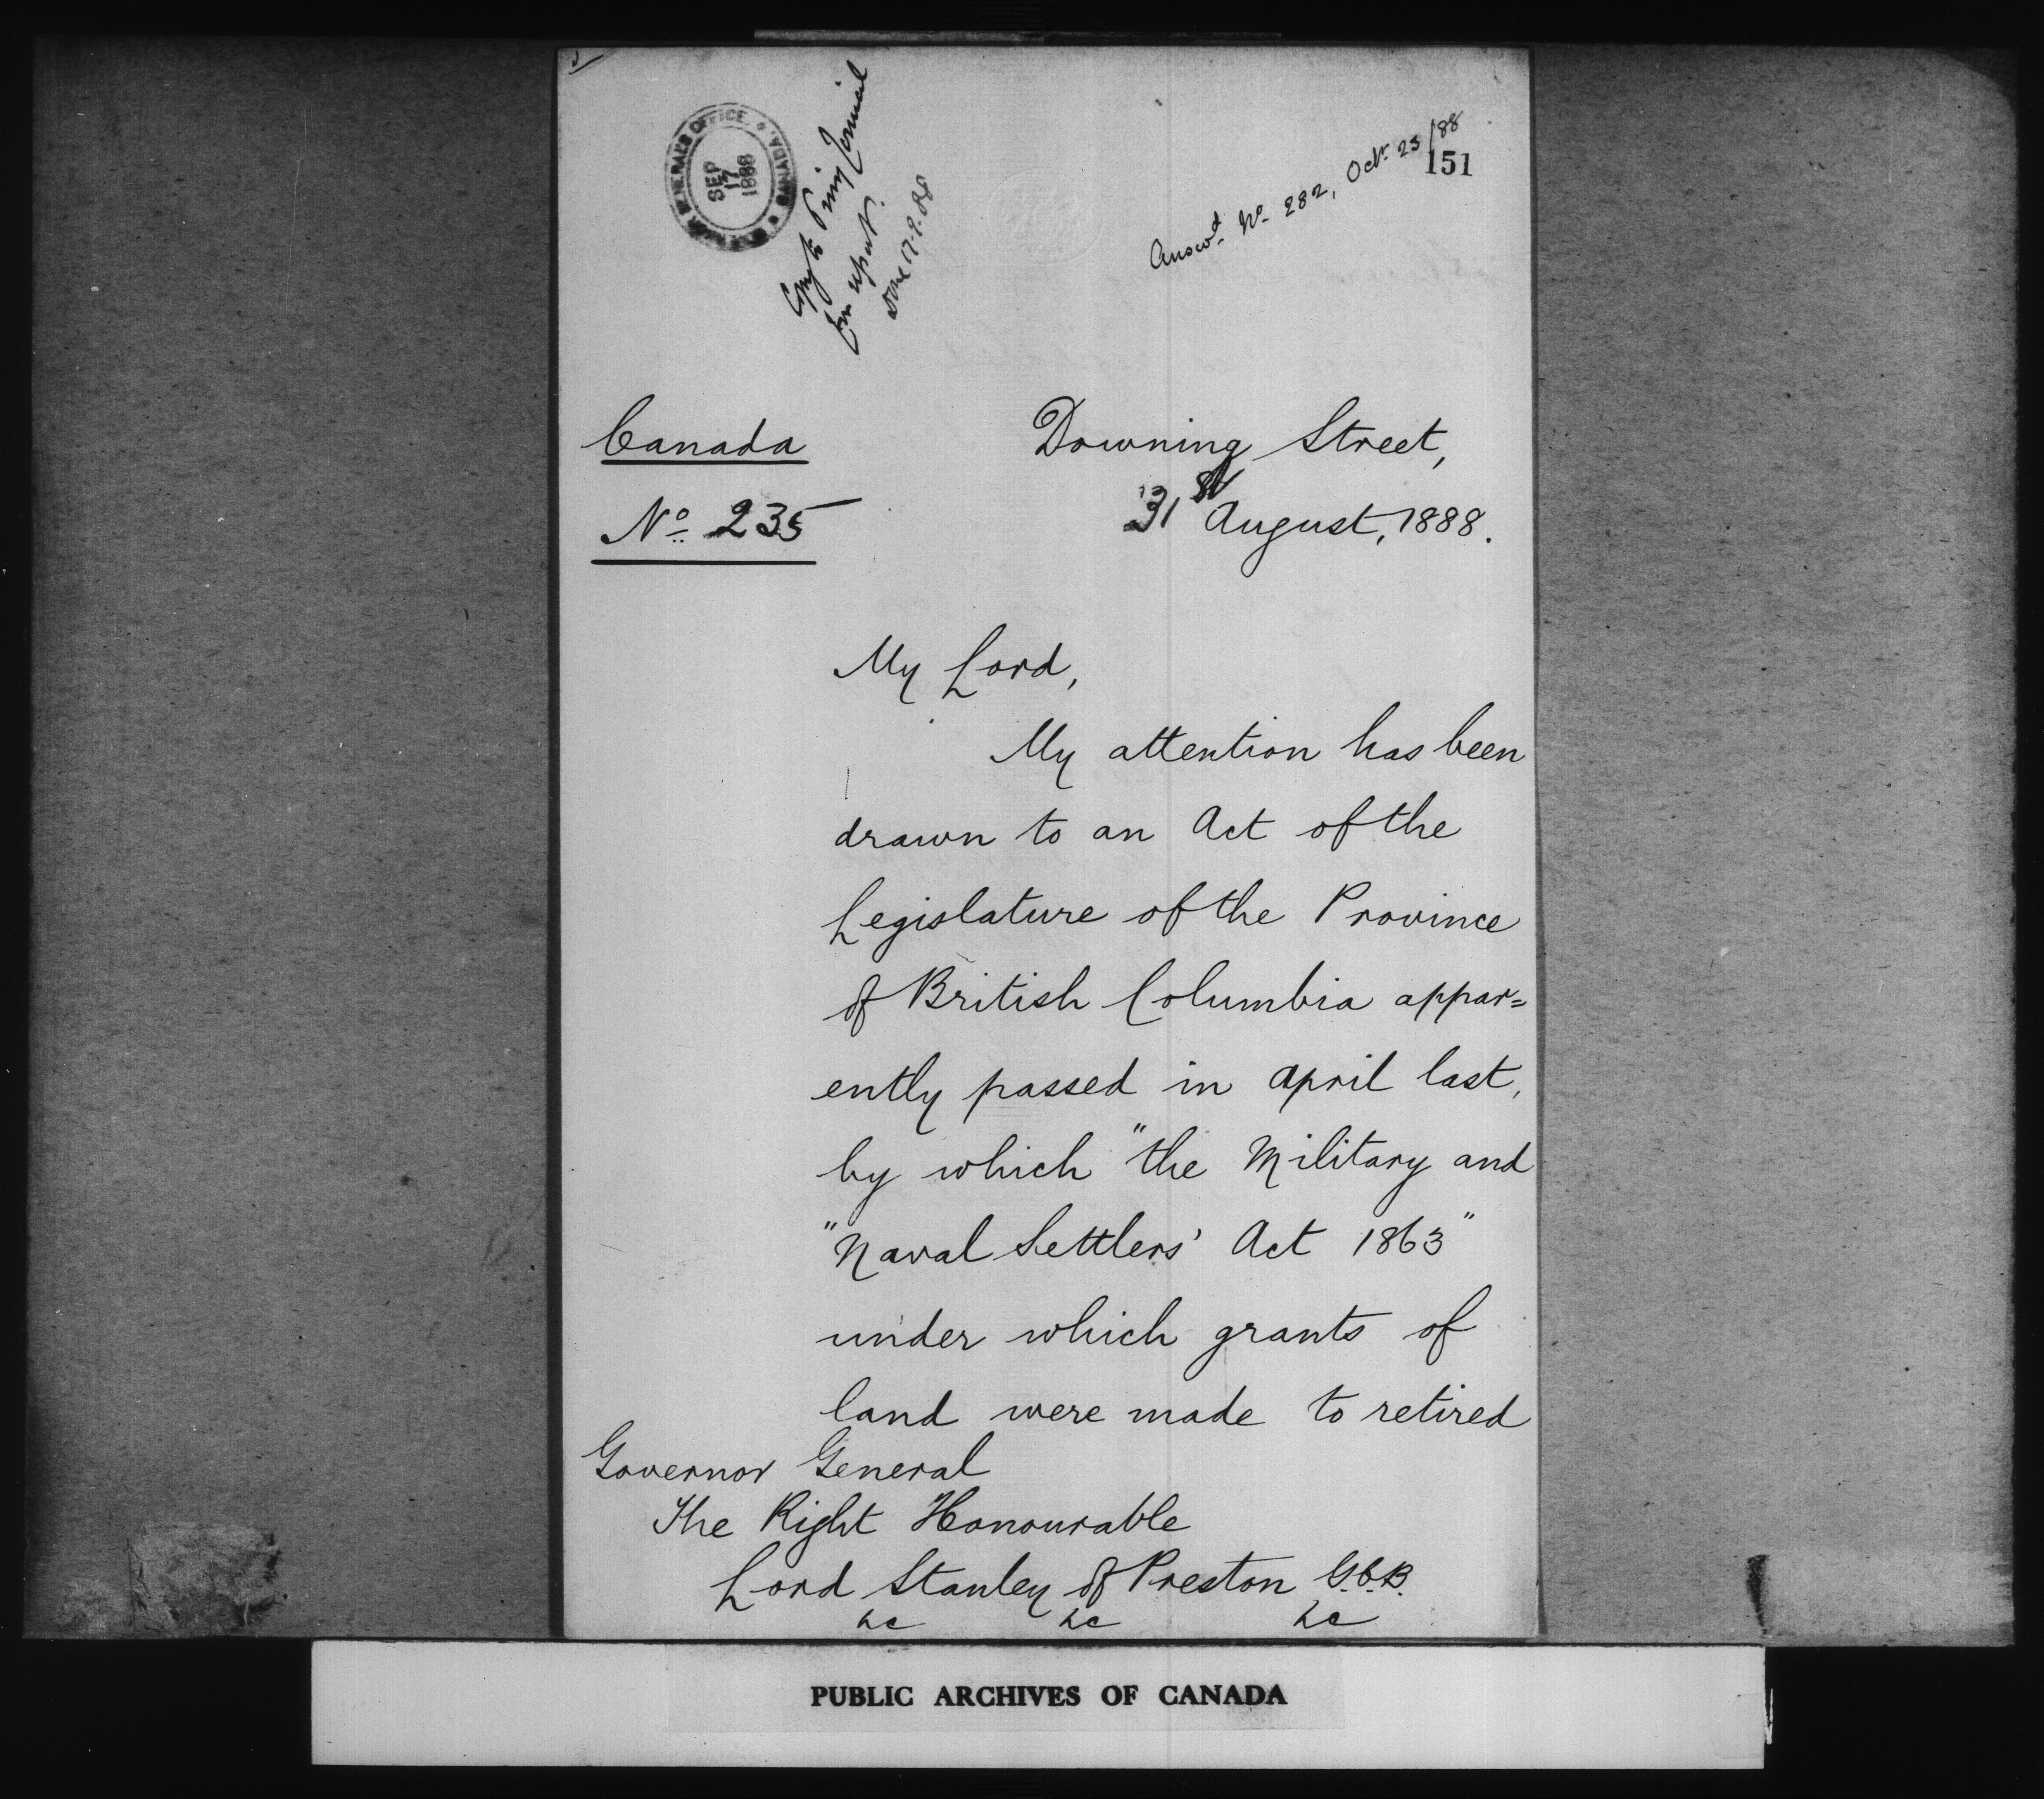 GOVERNOR GENERAL'S OFFICE. CANADA.
SEP
17
1888
Copy to Privy Council
for report.
Done 17.9.88
Answd. No. 282, Octr. 23/88
151
Canada
No. 235
Downing Street,
31st August, 1888.
My Lord,
My attention has been
drawn to an Act of the
Legislature of the Province
of British Columbia appar=
ently passed in April last,
by which "the Military and
"Naval Settlers' Act 1863"
under which grants of
land were made to retired
Governor General
The Right Honourable
Lord Stanley of Preston G.C.B.
&c &c &c
PUBLIC ARCHIVES OF CANADA